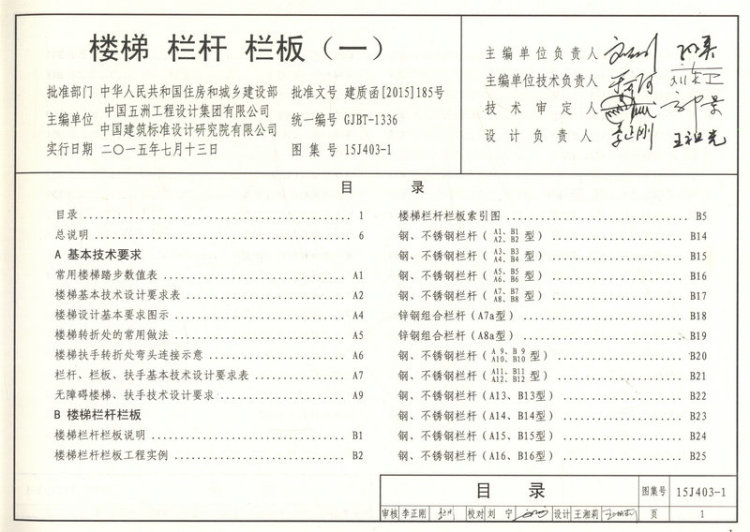 楼梯 栏杆 栏板（一）
批准部门 中华人民共和国住房和城乡建设部 批准文号 建质函[2015]185号
主编单位 中国五洲工程设计集团有限公司
中国建筑标准设计研究院有限公司 统一编号 GJBT-1336
实行日期 二〇一五年七月十三日 图集号 15J403-1
主编单位负责人
主编单位技术负责人
技术审定人
设计负责人 李正刚 王祖光
目 录
目录 1
总说明 6
A 基本技术要求
常用楼梯踏步数值表 A1
楼梯基本技术设计要求表 A2
楼梯设计基本要求图示 A4
楼梯转折处的常用做法 A5
楼梯扶手转折处弯头连接示意 A6
栏杆、栏板、扶手基本技术设计要求表 A7
无障碍楼梯、扶手技术设计要求 A9
B 楼梯栏杆栏板
楼梯栏杆栏板说明 B1
楼梯栏杆栏板工程实例 B2
楼梯栏杆栏板索引图 B5
钢、不锈钢栏杆（A1、B1 A2、B2 型） B14
钢、不锈钢栏杆（A3、B3 A4、B4 型） B15
钢、不锈钢栏杆（A5、B5 A6、B6 型） B16
钢、不锈钢栏杆（A7、B7 A8、B8 型） B17
锌钢组合栏杆（A7a型） B18
锌钢组合栏杆（A8a型） B19
钢、不锈钢栏杆（A9、B9 A10、B10 型） B20
钢、不锈钢栏杆（A11、B11 A12、B12 型） B21
钢、不锈钢栏杆（A13、B13型） B22
钢、不锈钢栏杆（A14、B14型） B23
钢、不锈钢栏杆（A15、B15型） B24
钢、不锈钢栏杆（A16、B16型） B25
目 录 图集号 15J403-1
审核 李正刚 校对 刘宁 设计 王湘莉 页 1